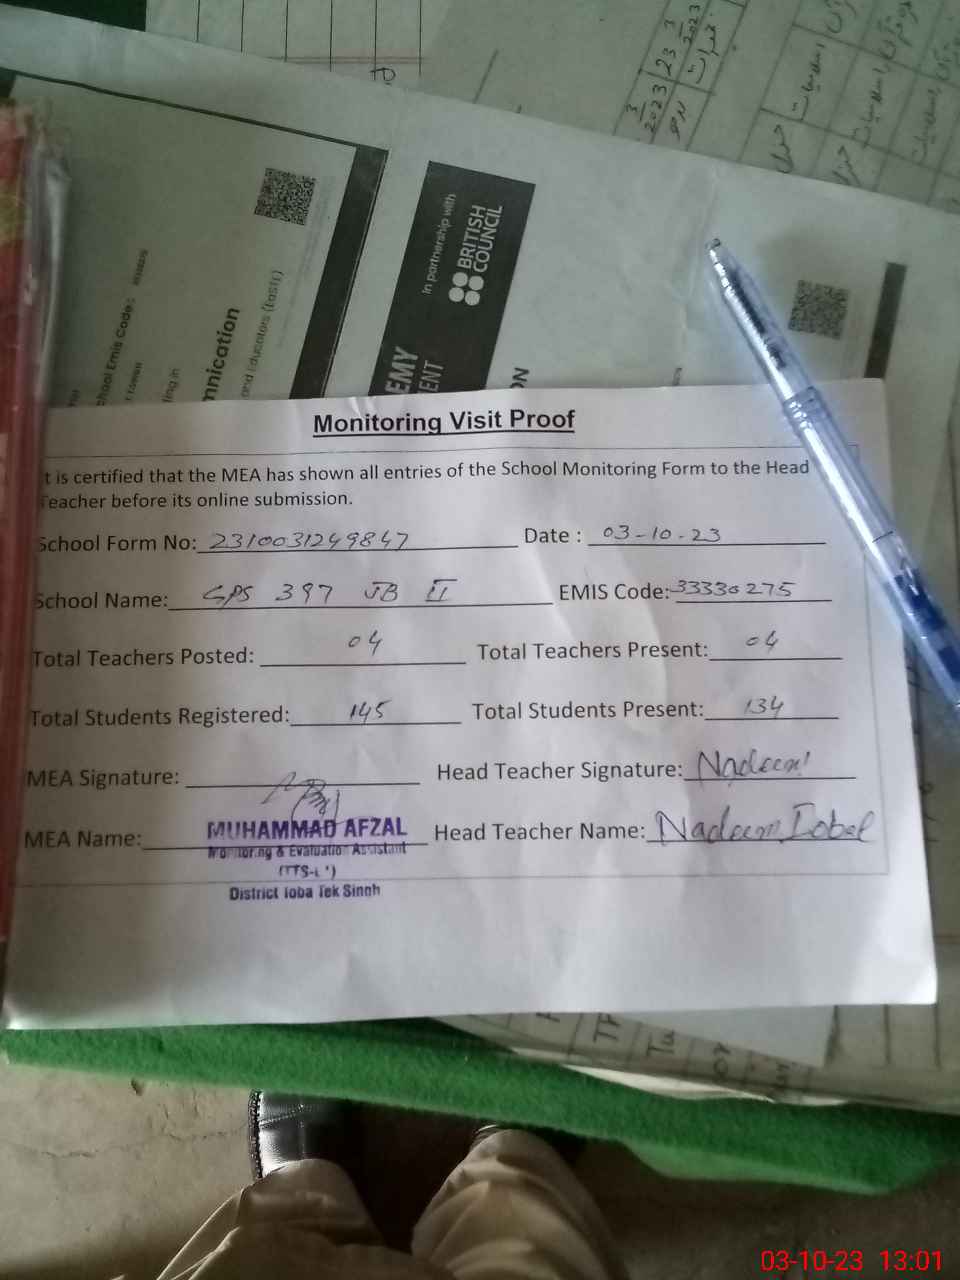 Monitoring Visit Proof
t is certified that the MEA has shown all entries of the School Monitoring Form to the Head
Teacher before its online submission.
School Form No: 2310031249847 Date : 03-10-23
School Name: GPS 397 JB II EMIS Code: 33330275
Total Teachers Posted: 04 Total Teachers Present: 04
Total Students Registered: 145 Total Students Present: 134
MEA Signature: Head Teacher Signature: Nadeem
MEA Name: MUHAMMAD AFZAL Head Teacher Name: Nadeem Iqbal
Monitoring & Evaluation Assistant
District Toba Tek Singh
In partnership with
BRITISH
COUNCIL
EMY
ENT
ON
chool Emis Code:
ting in
nnication
and Educators (East)
3
2023
23
3
2023
03-10-23 13:01